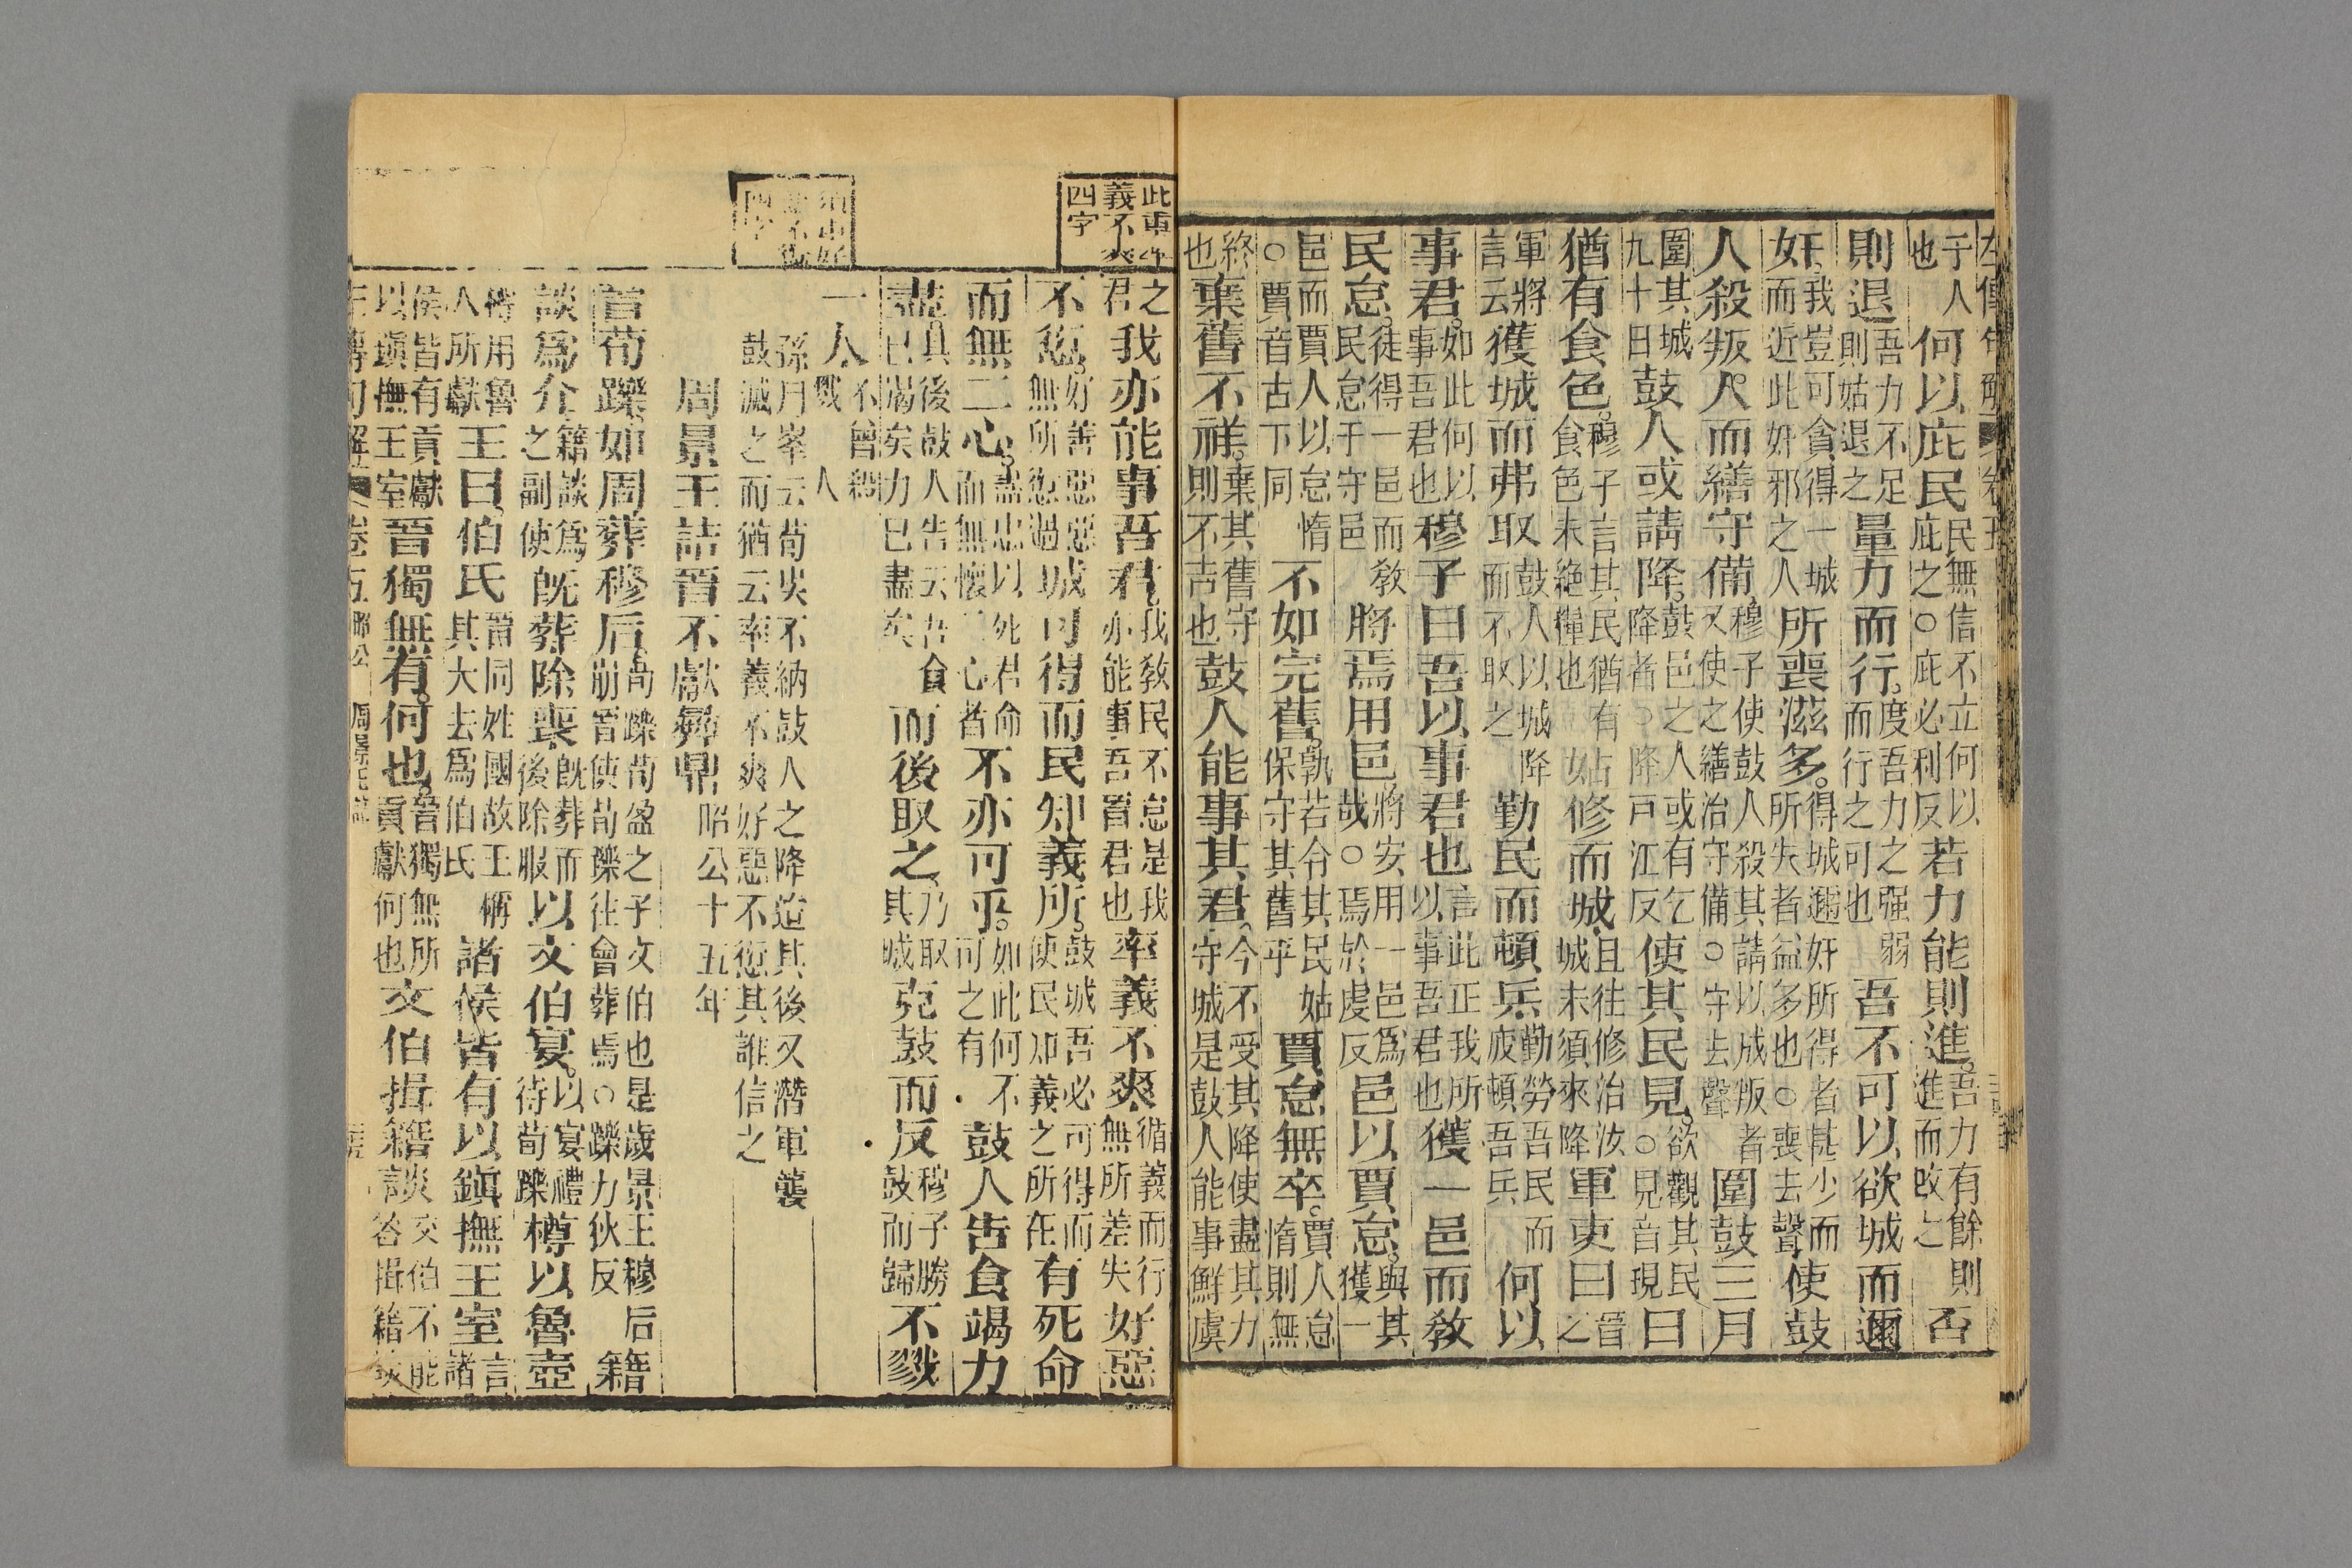 于人也何以庇民民無信不立何以庇之○庇必利反若力能則進吾力有餘則進而攻之否
則退吾力不足則姑退之量力而行度吾力之强弱而行之可也吾不可以欲城而邇
奸我豈可貪得一城而近此奸邪之人所喪滋多得城邇奸所得者甚少而所失者益多也○喪去聲使鼓
人殺叛人而繕守備穆子使鼓人殺其請以成叛者又使之繕治守備○守去聲圍鼓三月
圍其城九十日鼓人或請降鼓邑之人或有乞降者○降戸江反使其民見欲觀其民○見音現曰
猶有食色穆子言其民猶有食色未絶糧也姑修而城且往修治汝城未須來降軍吏曰晉之
軍將言云獲城而弗取鼓人以城降而不取之勤民而頓兵勤勞吾民而疲頓吾兵何以
事君如此何以事吾君也穆子曰吾以事君也言此正我所以事吾君也獲一邑而敎
民怠徒得一邑而敎民怠于守邑將焉用邑將安用一邑爲哉○焉於虔反邑以賈怠與其獲一
邑而賈人以怠惰○賈音古下同不如完舊孰若令其民姑保守其舊乎賈怠無卒賈人怠惰則無
終也棄舊不祥棄其舊守則不吉也鼓人能事其君今不受其降使盡其力守城是鼓人能事鮮虞
此重
義不爽
四字
之君我亦能事吾君我敎民不怠是我亦能事吾晉君也率義不爽循義而行無所差失好惡
不愆好善惡惡無所愆過城可得而民知義所鼓城吾必可得而使民知義之所在有死命
而無二心盡忠以死君命而無懷二心者不亦可乎如此何不可之有鼓人告食竭力
盡其後鼓人告云吾食已竭矣力已盡矣而後取之乃取其城克鼓而反穆子勝鼓而歸不戮
一人不曾殺戮一人
孫月峯云荀吳不納鼓人之降迨其後又潛軍襲鼓滅之而猶云率義不爽好惡不愆其誰信之
周景王詰晉不獻彝鼎昭公十五年
晉荀躒如周葬穆后荀躒荀盈之子文伯也是歲景王穆后崩晉使荀躒往會葬焉○躒力狄反籍
談爲介籍談爲之副使旣葬除喪旣葬而後除服以文伯宴以宴禮待荀躒樽以魯壺
樽用魯人所獻王曰伯氏晉同姓國故王稱其大夫爲伯氏諸侯皆有以鎭撫王室言諸
侯皆有貢獻以鎭撫王室晉獨無有何也晉獨無所貢獻何也文伯揖籍談文伯不能答揖籍談